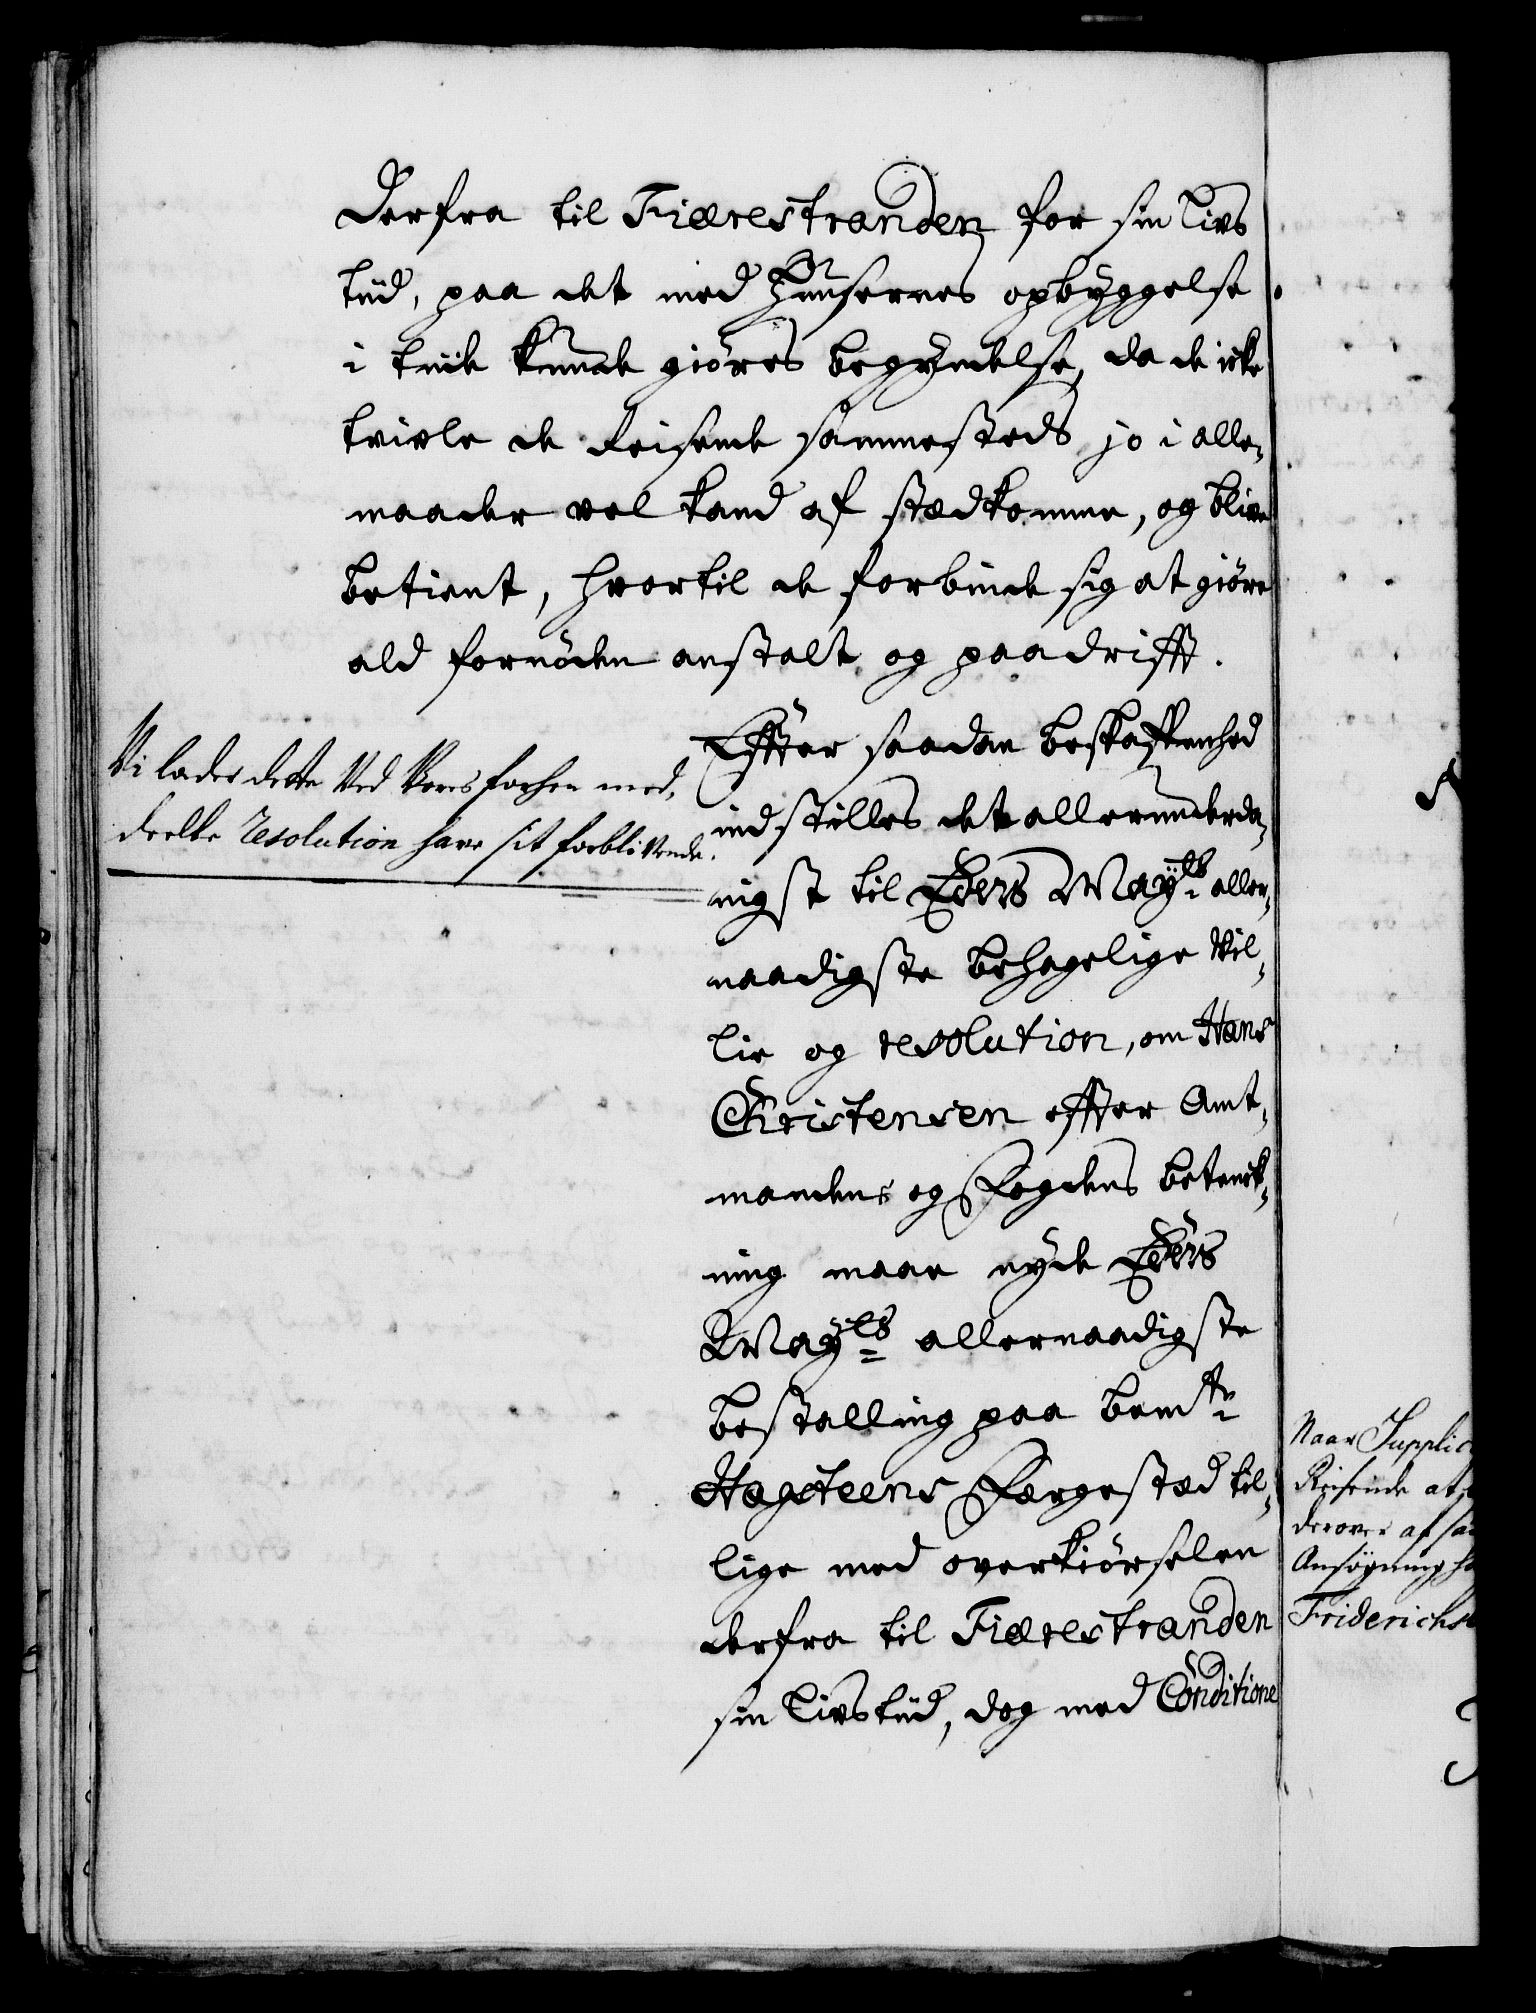 Derfra til Fiærestranden for sin livs
tiid, paa det med Huusernes opbyggelse
i tiide kunde giöres begyndelse, da de icke
tvivle de Reisende sammesteds jo i alle-
maader vel kand af stædkomme, og blive
betient, hvortil de forbinde sig at giöre
ald fornöden anstalt og paadrifft.
Vi lader dette Ved Vores forhen med,
deelte resolution have sit forblivende.
Effter saadan beskaffenhed
indstilles det allerunderda-
nigst til Eders May.ts aller-
naadigste behagelige Vil-
lie og resolution, om Hans
Christensen effter Amt-
mandens og Fogdens betenk-
ning maae nyde Eders
May.ts allernaadigste
bestalling paa bem.te
Hagsteens Færgestæd til-
lige med overkiörselen
derfra til Fiærestranden
sin livs tiid, dog med Conditione
Naar Supplic
Reisende at
derover af
Ansögning
Friderichs